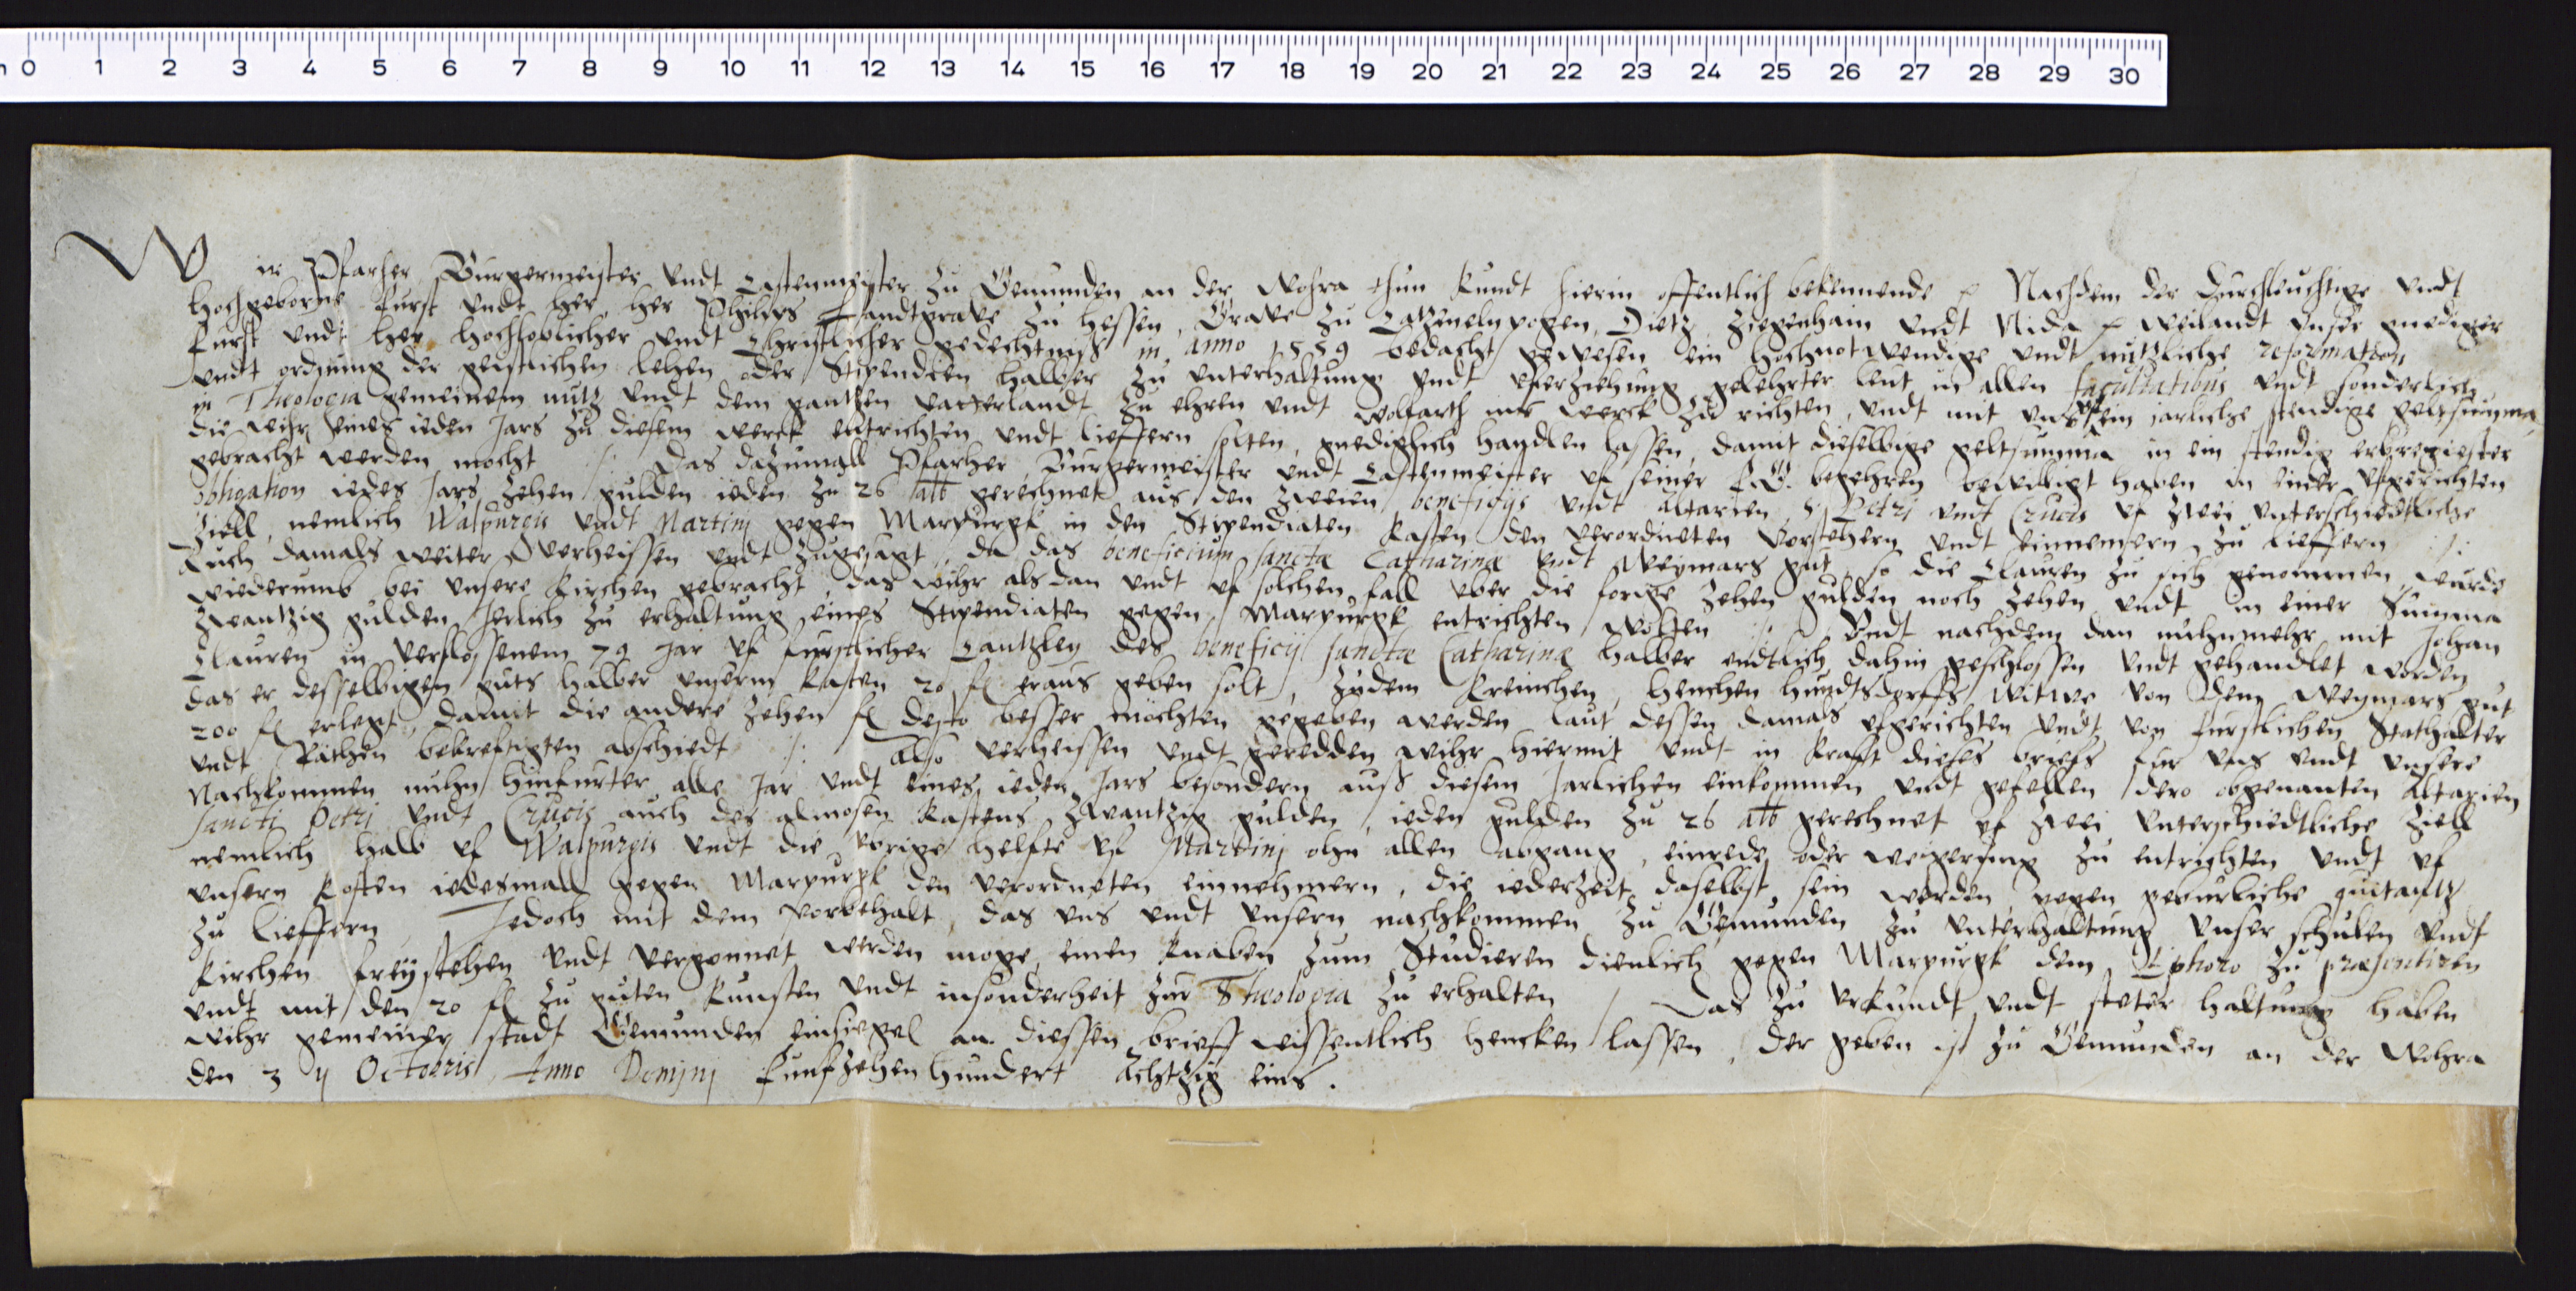 0 1 2 3 4 5 6 7 8 9 10 11 12 13 14 15 16 17 18 19 20 21 22 23 24 25 26 27 28 29 30
Wir Pfarher, Burgermeister undt Castenmeister zu Gemunden an der Wohra thun kundt hierin offentlich bekennende Nachdem der Durchleuchtige undt
hochgeborne Furst undt her, her Philips Landtgrave zu Hessen, Grave zu Catzenelnpogen, Dietz, Ziegenhain undt Nida weilandt unser gnediger
Furst undt her hochloblicher undt Christlicher gedechtnis in anno 1559 bedacht gewesen ein hochnotwendige undt nutzliche reformation
undt ordnung der geistlichen lehen oder Stipendien halber zu unterhaltung undt uferziehung gelehrter leut in allen facultatibus undt sonderlich
in Theologia gemeinem nutz undt dem gantzen vatterlandt zu ehren undt wolfarth ins werck zu richten, undt mit jarliche stendige geltsumma
die wihr eines ieden Jars zu diesem werck entrichten undt lieffern solten, gnediglich handlen lassen, damit dieselbige geltsumma in ein stendig erbregiester
gebracht werden mocht ./. Das dazumall Pfarher, Burgermeister undt Castenmeister uf seiner F.G. begehren bewilligt haben in einer ufgerichten
obligation iedes Jars zehen gulden ieden zu 26 alb gerechnet aus den zweien beneficiis undt altarien S. Petri undt Crucis uf zwei unterschiedtliche
Ziell, nemlich Walpurgis undt Martini gegen Marpurgk in den Stipendiaten Kasten den verordneten vorstehern undt einnemern zu lieffern ./.
Auch damals weiter verheissen undt zugesagt, da das beneficium sanctæ Catharinæ undt Weymars gut, so die Clauren zu sich genommen, wurde
wiederumb bei unsere Kirchen gebracht, das wihr als dan undt uf solchen fall uber die forige zehen gulden noch zehen undt in einer Summa
zwantzig gulden Jerlich zu erhaltung eines Stipendiaten gegen Marpurgk entrichten wolten ./. Undt nachdem dan nuhnmehr mit Johan
Clauren in verflossenem 79 Jar uf furstlicher Cantzley des beneficii sanctæ Catharinæ halber endtlich dahin geschlossen undt gehandlet worden
das er desselbigen guts halber unserm kasten 20 fl heraus geben solt, zudem Kreinchen, Henchen Hundtsdorffs witwe von dem Weymars gut
200 fl erlegt, damit die andere zehen fl desto besser mochten gegeben werden, laut dessen damals ufgerichten undt von furstlichen Stathalter
undt Räthen bekrefftigten abschiedt ./. Also verheissen undt geredden wihr hiermit undt in krafft dieses brieffs fur uns undt unsere
Nachkommen nuhn hinfurter alle Jar undt eines ieden Jars besondern auß diesem Jarlichen einkommen undt gefellen dero obgenanten Altarien
sancti Petri undt Crucis auch des almosen kastens zwantzig gulden, ieden gulden zu 26 alb gerechnet uf zwei unterschiedtliche Ziell
nemlich halb uf Walpurgis undt die ubrige helfte uf Martini ohn allen abgang, einrede oder weigerung zu entrichten undt uf
unsern kosten iedesmall gegen Marpurgk den verordneten einnehmern, die iederzeit daselbst sein werden, gegen geburliche quitantz
zu lieffern, Jedoch mit dem vorbehalt, das uns undt unsern nachkommen zu Gemunden zu unterhaltung unser schulen undt
Kirchen freystehen undt vergonnet werden moge, einen knaben zum Studieren dienlich gegen Marpurgk dem Ephoro zu præsentiren
undt mit den 20 fl zu guten kunsten undt insonderheit zur Theologia zu erhalten / Das zu urkundt undt steter haltung haben
wihr gemeiner stadt Gemunden einsiegel an diessen brieff wissentlich hencken lassen, der geben ist zu Gemunden an der Wohra
den 3 Octobris, Anno Domini funfzehenhundert Achtzig eins.